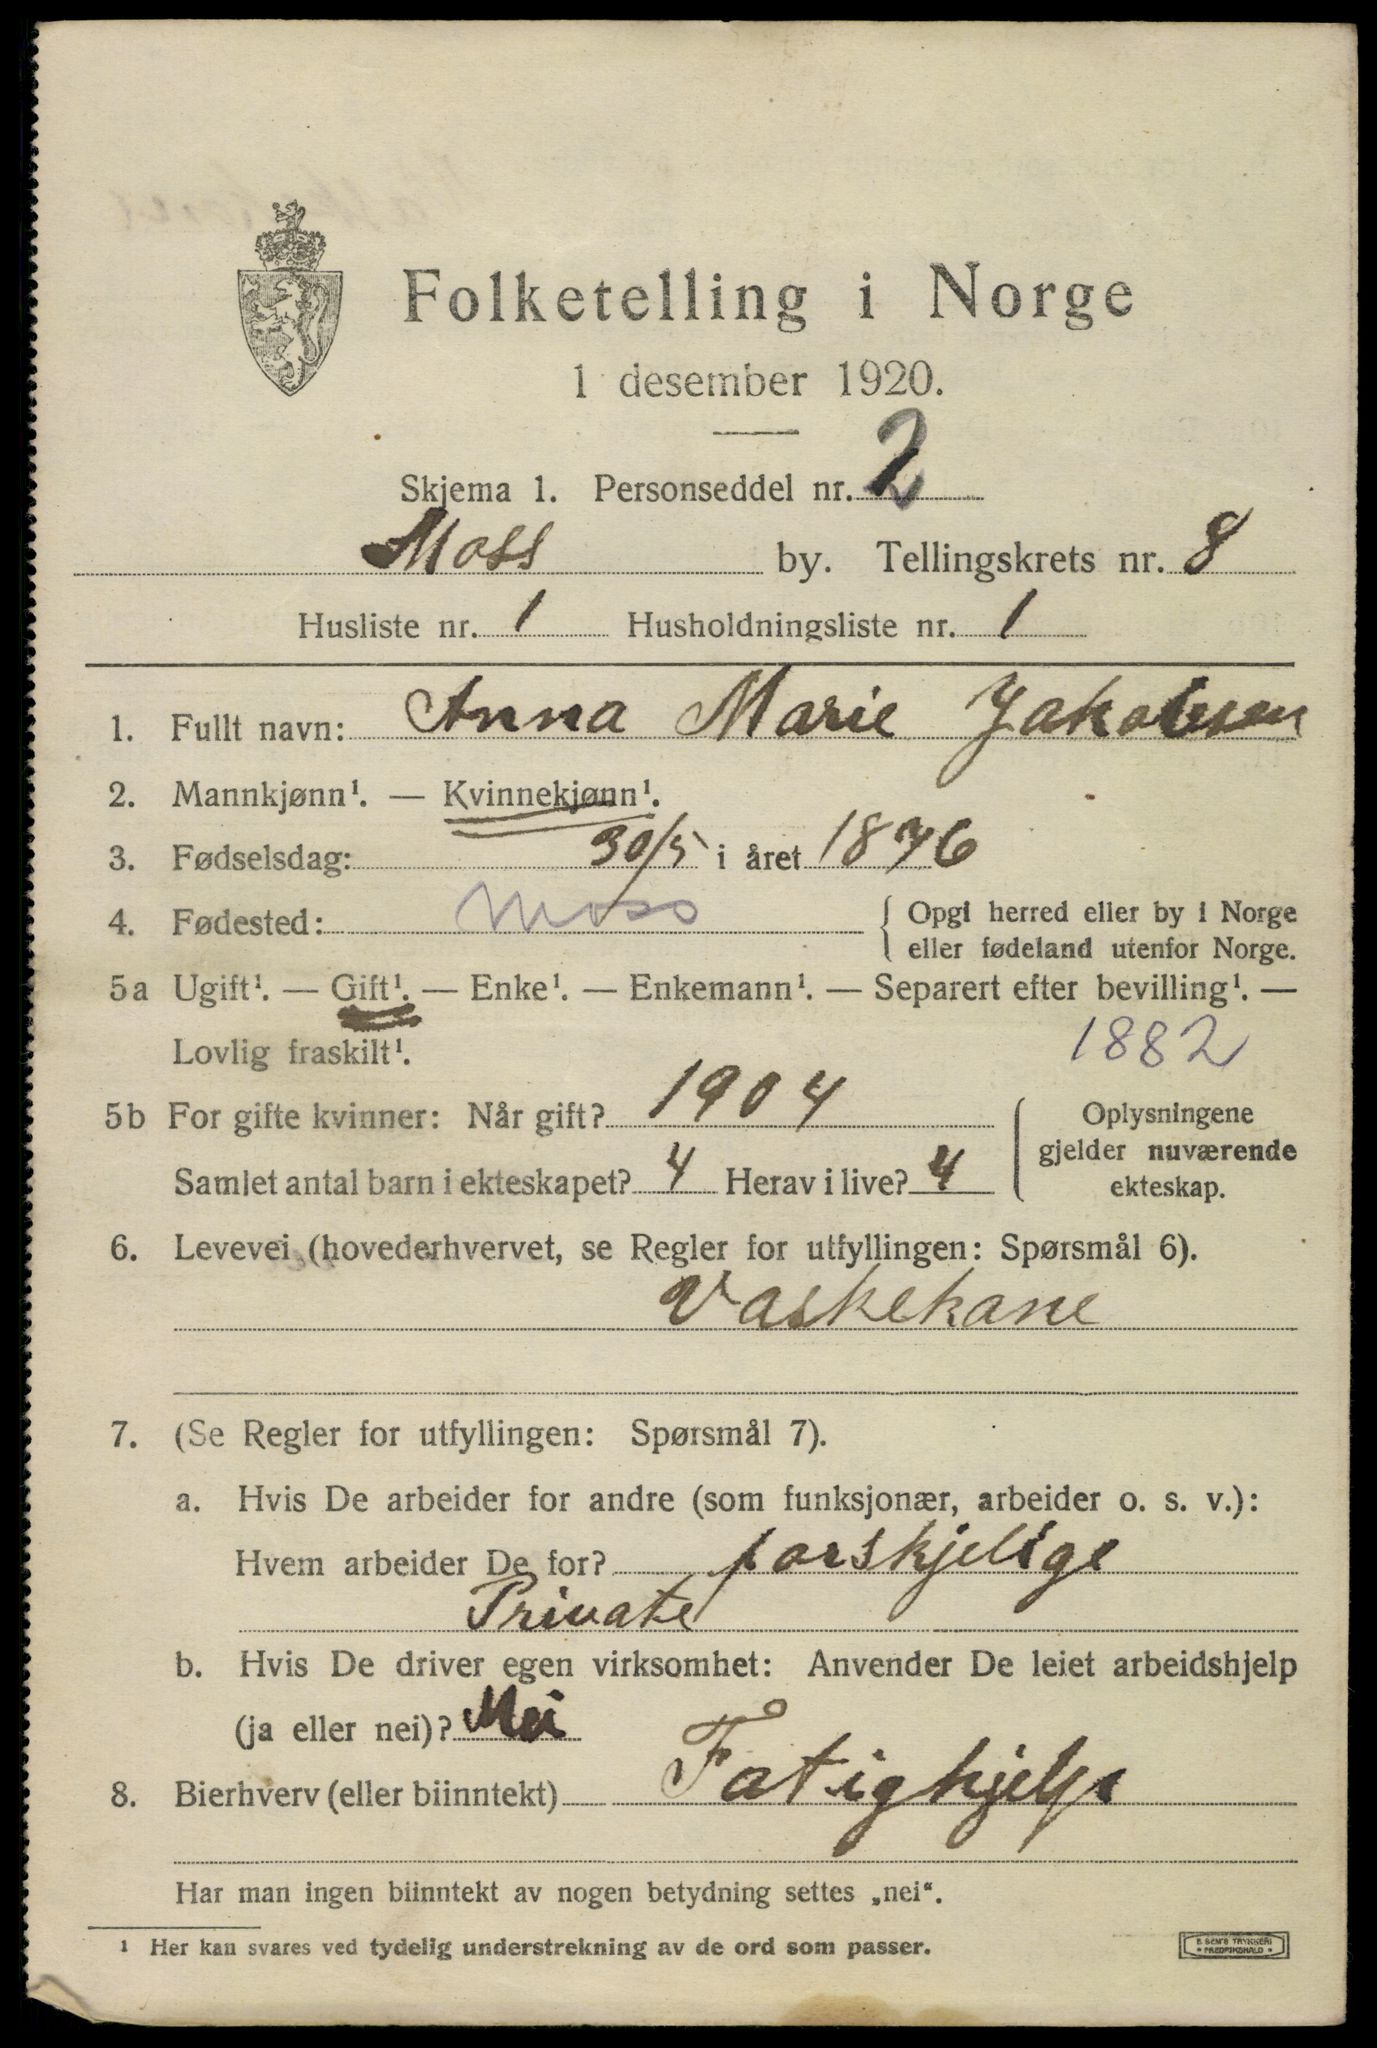 Folketelling i Norge
1 desember 1920.
Skjema 1. Personseddel nr. 2
Moss by. Tellingskrets nr. 8
Husliste nr. 1 Husholdningsliste nr. 1
1. Fullt navn: Anna Marie Jakobsen
2. Mannkjønn¹. — Kvinnekjønn¹.
3. Fødselsdag: 30/5 i året 1876
4. Fødested: Moss { Opgi herred eller by i Norge
eller fødeland utenfor Norge.
5a Ugift¹. — Gift¹. — Enke¹. — Enkemann¹. — Separert efter bevilling¹. —
Lovlig fraskilt¹. 1882
5b For gifte kvinner: Når gift? 1904
Samlet antal barn i ekteskapet? 4 Herav i live? 4
{ Oplysningene
gjelder nuværende
ekteskap.
6. Levevei (hovederhvervet, se Regler for utfyllingen: Spørsmål 6).
Vaskekane
7. (Se Regler for utfyllingen: Spørsmål 7).
a. Hvis De arbeider for andre (som funksjonær, arbeider o. s. v.):
Hvem arbeider De for? forskjelige
Private
b. Hvis De driver egen virksomhet: Anvender De leiet arbeidshjelp
(ja eller nei)? Nei
8. Bierhverv (eller biinntekt) Fatighjelp
Har man ingen biinntekt av nogen betydning settes „nei“.
¹ Her kan svares ved tydelig understrekning av de ord som passer.
E. SEM'S TRYKKERI
• FREDRIKSHALD •